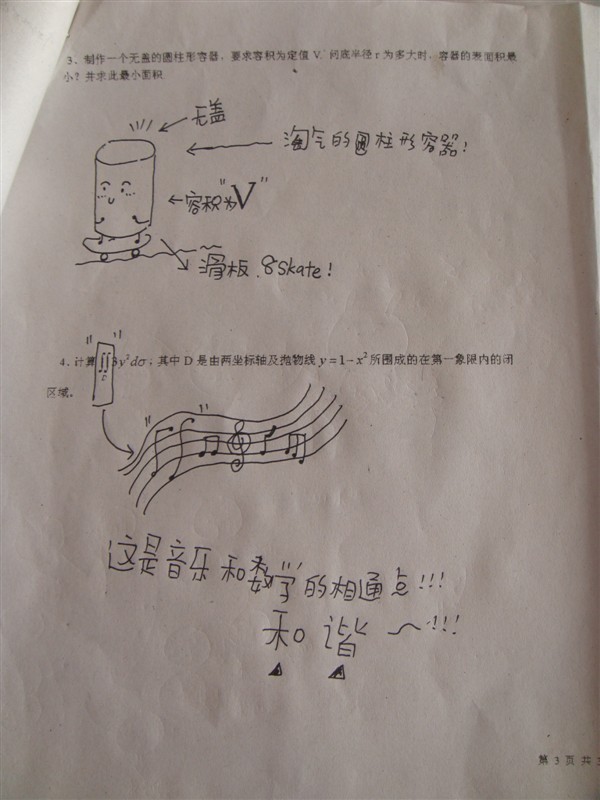 3、制作一个无盖的圆柱形容器，要求容积为定值 V，问底半径 r 为多大时，容器的表面积最
小？并求此最小面积.
无盖
淘气的圆柱形容器!
容积为"V"
滑板.8skate!
4. 计算∬3y²dσ；其中 D 是由两坐标轴及抛物线 y=1−x² 所围成的在第一象限内的闭
区域。
这是音乐和数学的相通点!!!
和谐～!!!
第 3 页 共 3